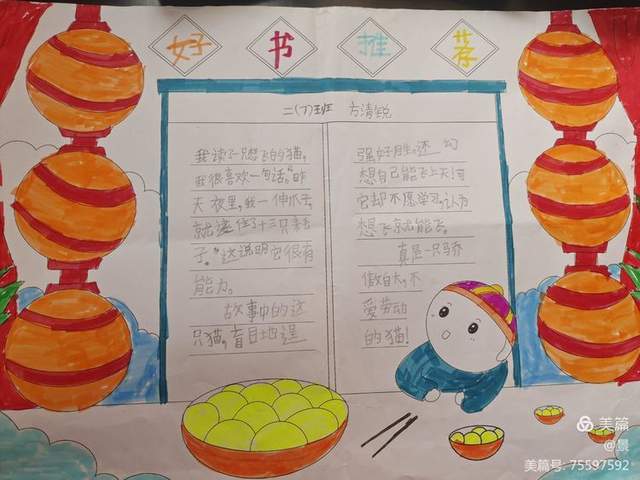 好书推荐
二(7)班 方清锐
我读了一只想飞的猫,
我很喜欢一句话,"昨
天夜里,我一伸爪子,
就逮住了十三只耗
子。"这说明它很有
能力。
故事中的这
只猫,盲目地逞
强好胜,还
想自己能飞上天!可
它却不愿学习,认为
想飞就能飞。
真是一只骄
傲自大,不
爱劳动
的猫!
美篇
@景
美篇号: 75597592